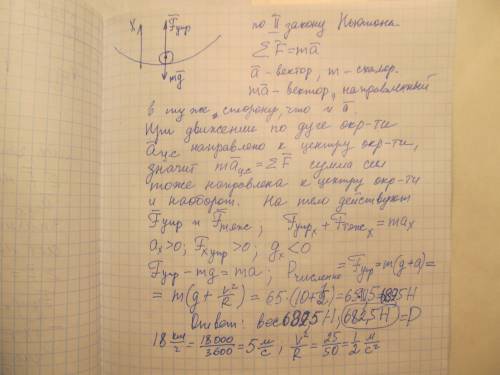 X F̅упр
по II закону Ньютона
mg̅
∑F̅=ma̅
a̅ - вектор, m - скаляр.
ma̅ - вектор, направленный
в ту же сторону, что и a̅.
При движении по дуге окр-ти
a̅цс направлено к центру окр-ти,
значит ma̅цс = ∑F̅ сумма сил
тоже направлена к центру окр-ти
и наоборот. На тело действуют
F̅упр и F̅тяж; F̅упрx + F̅тяжx = max
ax>0; Fxупр>0; gx<0
F̅упр - mg = ma; Pчисленно = F̅упр = m(g+a) =
= m(g + V²/R) = 65·(10+1/2) = 682,5 Н
Ответ: вес 682,5 Н; 682,5 Н = P
18 км/ч = 18000/3600 = 5 м/с; V²/R = 25/50 = 1/2 м/с²